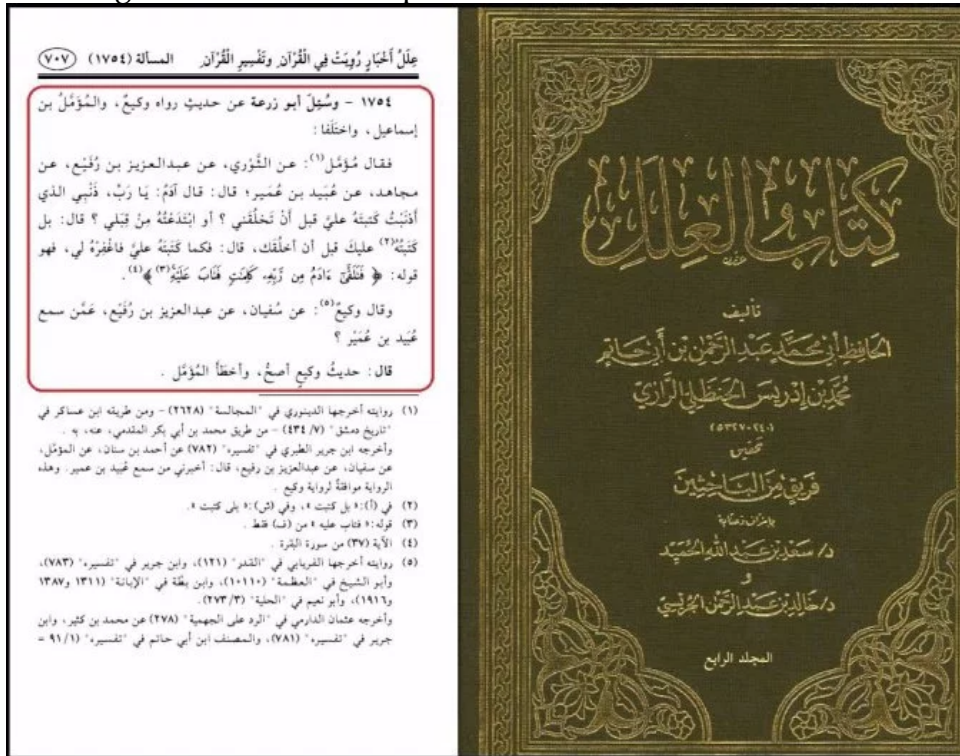 عِلَلُ أَخْبَارٍ رُوِيَتْ فِي الْقُرْآنِ وَتَفْسِيرِ الْقُرْآنِ المسألة (١٧٥٤) (٧٠٧)
١٧٥٤ - وسُئِلَ أبو زرعة عن حديثٍ رواه وكيعٌ، والمُؤَمَّلُ بن
إسماعيل، واختَلَفا:
فقال مُؤَمَّل(١): عن الثَّوْري، عن عبدالعزيز بن رُفَيْع، عن
مجاهد، عن عُبَيد بن عُمَير؛ قال: قال آدَمُ: يَا رَبِّ، ذَنْبِي الذي
أَذْنَبْتُ كَتبتَهُ عليَّ قبل أَنْ تَخلُقَني ؟ أو ابْتَدَعْتُهُ مِنْ قِبَلي ؟ قال: بل
كَتَبْتُهُ(٢) عليكَ قبل أن أخلُقَك، قال: فكما كَتَبْتَهُ عليَّ فاغْفِرْهُ لي، فهو
قوله: ﴿ فَتَلَقَّىٰٓ ءَادَمُ مِن رَّبِّهِۦ كَلِمَٰتٍ فَتَابَ عَلَيْهِ(٣) ﴾(٤).
وقال وكيعٌ(٥): عن سُفيان، عن عبدالعزيز بن رُفَيْع، عمَّن سمع
عُبَيد بن عُمَيْر ؟
قال: حديثُ وكيعٍ أصحُّ، وأخطَأَ المُؤَمَّل .
(١) روايته أخرجها الدينوري في "المجالسة" (٢٦٢٨) - ومن طريقه ابن عساكر في
"تاريخ دمشق" (٧/ ٤٣٤) - من طريق محمد بن أبي بكر المقدمي، عنه، به .
وأخرجه ابن جرير الطبري في "تفسيره" (٧٨٢) عن أحمد بن سنان، عن المؤمَّل،
عن سفيان، عن عبدالعزيز بن رفيع، قال: أخبرني من سمع عُبيد بن عمير. وهذه
الرواية موافقةٌ لرواية وكيع .
(٢) في (أ): « بل كتبت »، وفي (ش): « بلى كتبت ».
(٣) قوله: « فتاب عليه » من (ف) فقط .
(٤) الآية (٣٧) من سورة البقرة .
(٥) روايته أخرجها الفريابي في "القدر" (١٢١)، وابن جرير في "تفسيره" (٧٨٣)،
وأبو الشيخ في "العظمة" (١٠١١٠)، وابن بطَّة في "الإبانة" (١٣١١ و١٣٨٧
و١٩١٦)، وأبو نعيم في "الحلية" (٢٧٣/٣).
وأخرجه عثمان الدارمي في "الرد على الجهمية" (٢٧٨) عن محمد بن كثير، وابن
جرير في "تفسيره" (٧٨١)، والمصنف ابن أبي حاتم في "تفسيره" (٩١/١ =
كِتَابُ العِلَلِ
تأليف
الحَافِظِ أَبِي مُحَمَّدٍ عَبْدِ الرَّحْمٰنِ بْنِ أَبِي حَاتِمٍ
مُحَمَّدِ بْنِ إِدْرِيسَ الحَنْظَلِيِّ الرَّازِيِّ
(٢٤٠-٣٢٧هـ)
تحقيق
فَرِيقٍ مِنَ البَاحِثِينَ
بإشراف وعناية
د/ سَعْد بْن عَبْدِ اللهِ الحُمَيِّد
و
د/ خَالِد بْن عَبْدِ الرَّحْمٰنِ الجُرَيْسِيّ
المجلد الرابع